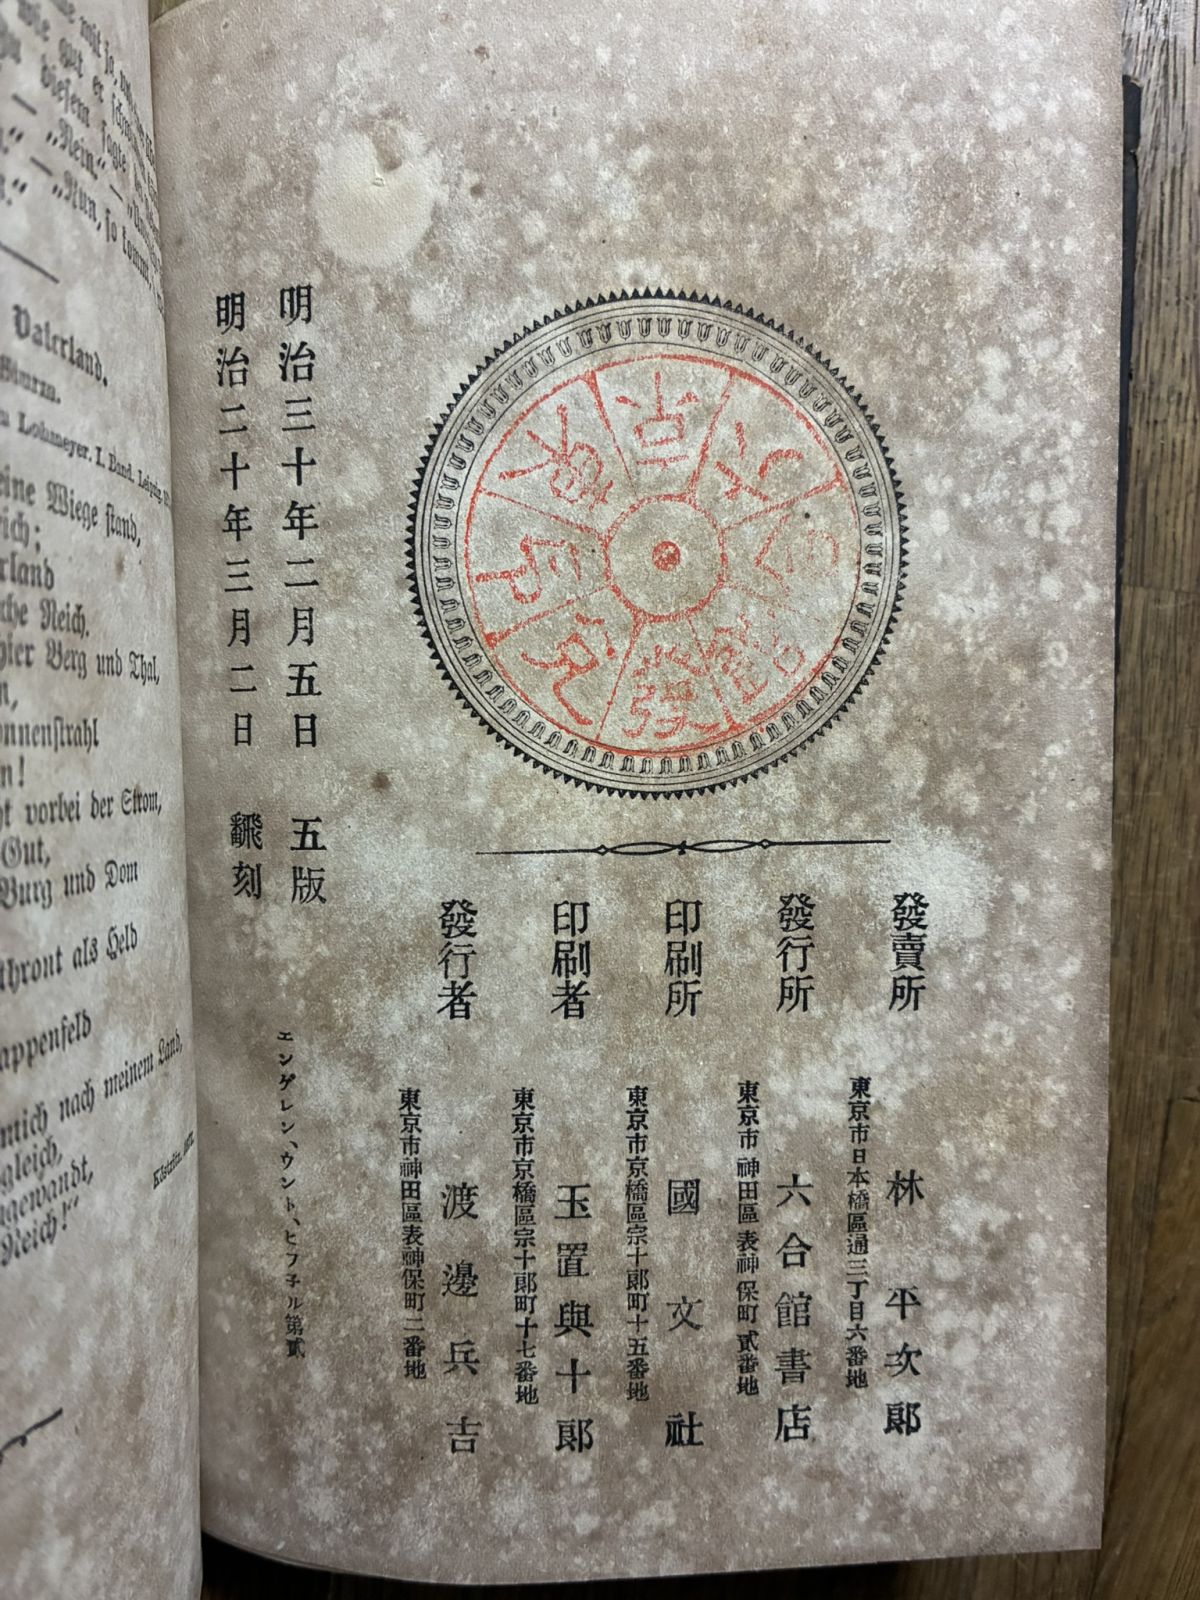 me mit so,
wie gut er
diesem sagte
— „Nein.“ —
— „Nun, so kommt
Vaterland.
Simrm.
Lohmeyer. I. Band. Leipzig.
eine Wiege stand,
reich;
erland
che Reich.
Berg und Thal,
onnenstrahl
n!
vorbei der Strom,
Gut,
Burg und Dom
thront als Held
appenfeld
mich nach meinem Land,
gleich,
ngewandt,
Reich!“
明治二十年三月二日 飜刻
明治三十年二月五日 五版
エンゲレン、ウント、ヒフ子ル第貳
發行者
東京市神田區表神保町二番地
渡邊兵吉
印刷者
東京市京橋區宗十郞町十七番地
玉置與十郞
印刷所
東京市京橋區宗十郞町十五番地
國文社
發行所
東京市神田區表神保町貳番地
六合館書店
發賣所
東京市日本橋區通三丁目六番地
林平次郞